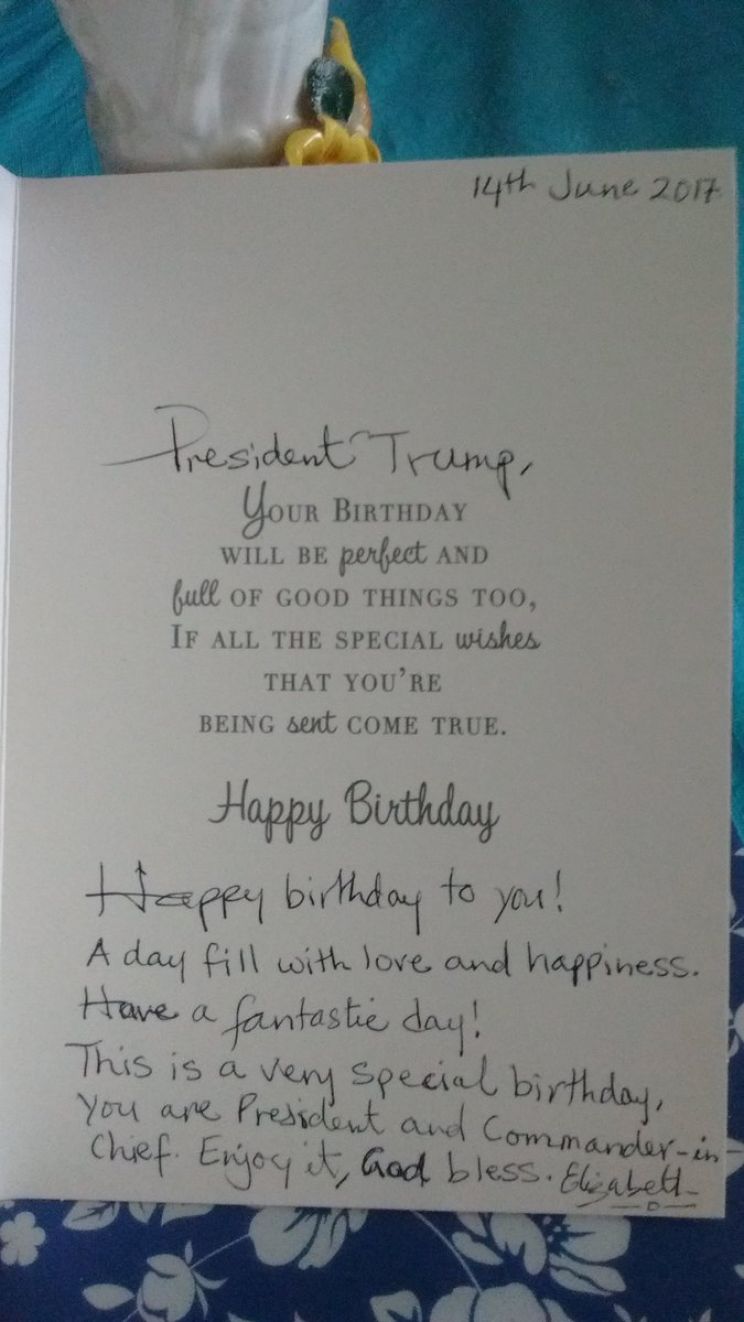 14th June 2017
President Trump,
YOUR BIRTHDAY
WILL BE perfect AND
full OF GOOD THINGS TOO,
IF ALL THE SPECIAL wishes
THAT YOU'RE
BEING sent COME TRUE.
Happy Birthday
Happy birthday to you!
A day fill with love and happiness.
Have a fantastic day!
This is a very special birthday,
You are President and Commander-in-
Chief. Enjoy it, God bless. Elizabeth